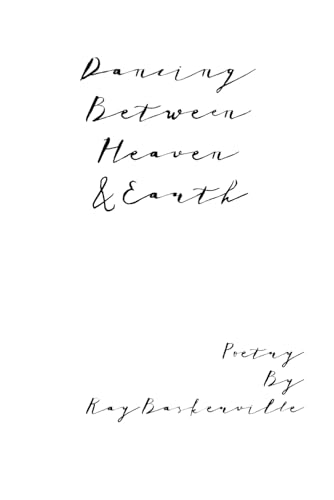 Dancing
Between
Heaven
& Earth
Poetry
By
Kay Baskerville